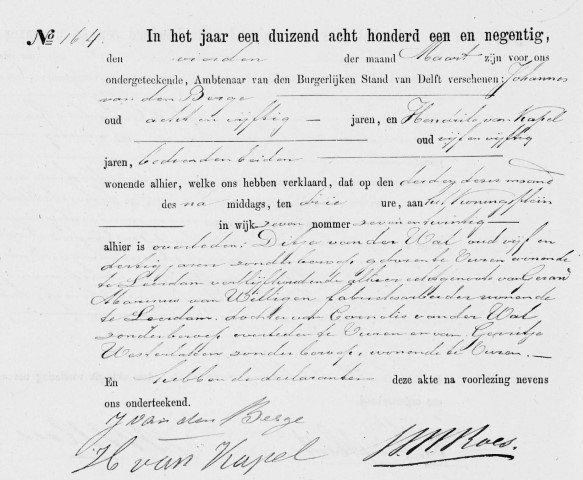 No 164. In het jaar een duizend acht honderd een en negentig,
den vierden der maand Maart zijn voor ons
ondergeteekende, Ambtenaar van den Burgerlijken Stand van Delft verschenen: Johannes
van den Berge
oud acht en vijftig jaren, en Hendrik van Kapel
oud vijf en vijftig
jaren, bedienden beiden
wonende alhier, welke ons hebben verklaard, dat op den derden dezer maand
des na middags, ten drie ure, aan het Koningsplein
in wijk zeven nommer zeven en twintig
alhier is overleden: Dirke van der Wal oud vijf en
dertig jaren zonder beroep, geboren te Vuren wonende
te Leerdam verblijfhoudende alhier echtgenoote van Gerard
van Willigen fabrieksarbeider wonende
te Leerdam, dochter van Cornelis van der Wal
zonder beroep overleden te Vuren en van Gerritje
zonder beroep, wonende te Vuren.
En hebben de declaranten deze akte na voorlezing nevens
ons onderteekend.
J van den Berge
H van Kapel